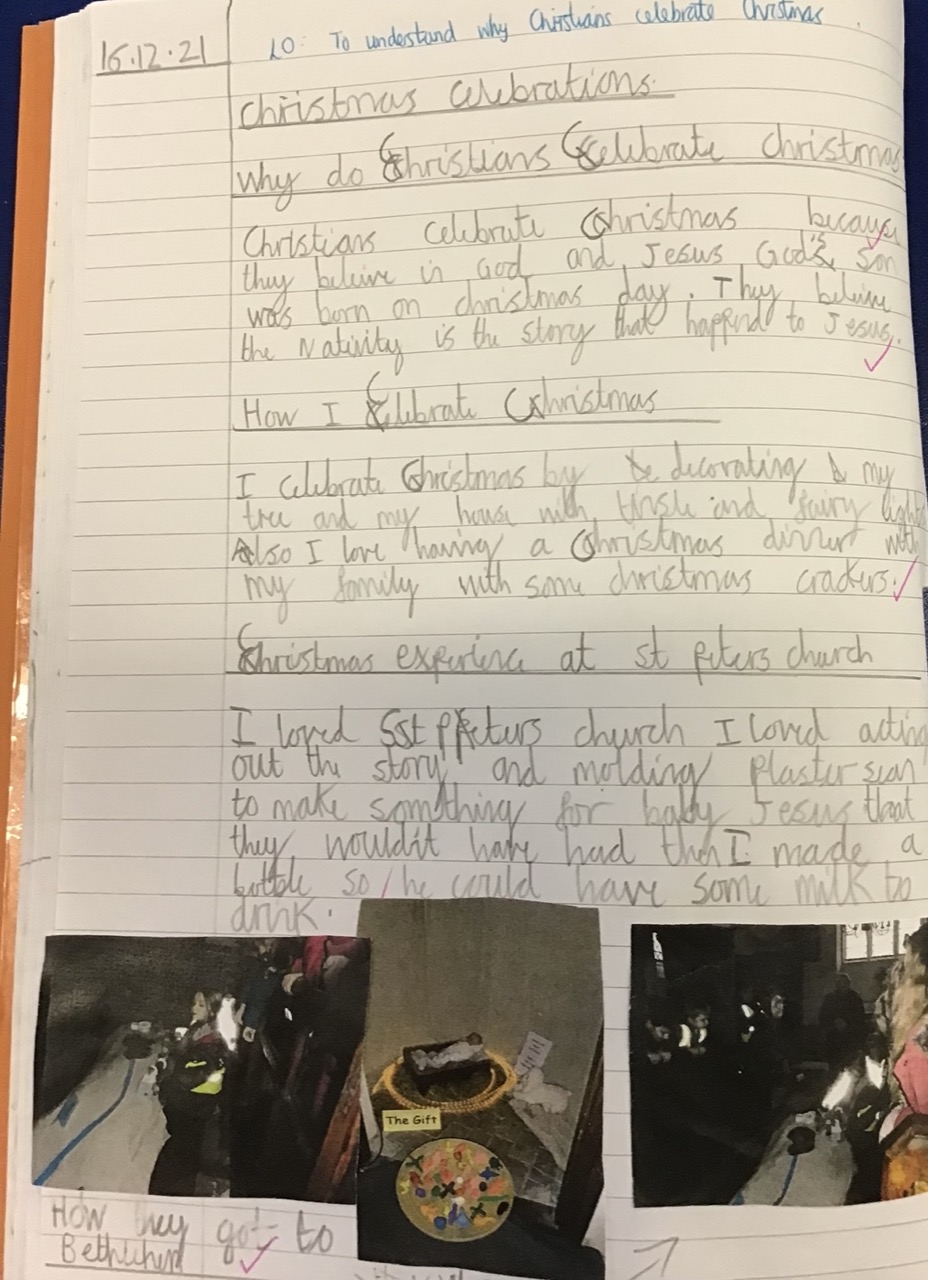 16.12.21
LO: To understand why Christians celebrate Christmas.
Christmas celebrations.
Why do Christians Celebrate christmas
Christians celebrate Christmas because
they beleive in God and Jesus God's son
was born on christmas day. They beleive
the Nativity is the story that happend to Jesus.
How I Celebrate Christmas
I celebrate Christmas by decorating my
tree and my house with tinsle and fairy lights
Also I love having a Christmas dinner with
my family with some christmas crackers.
Christmas experience at st peters church
I loved St Peters church I loved acting
out the story and molding plaster
to make something for baby Jesus that
they wouldit have had then I made a
bottle so he could have some milk to
drink.
The Gift
How they got to